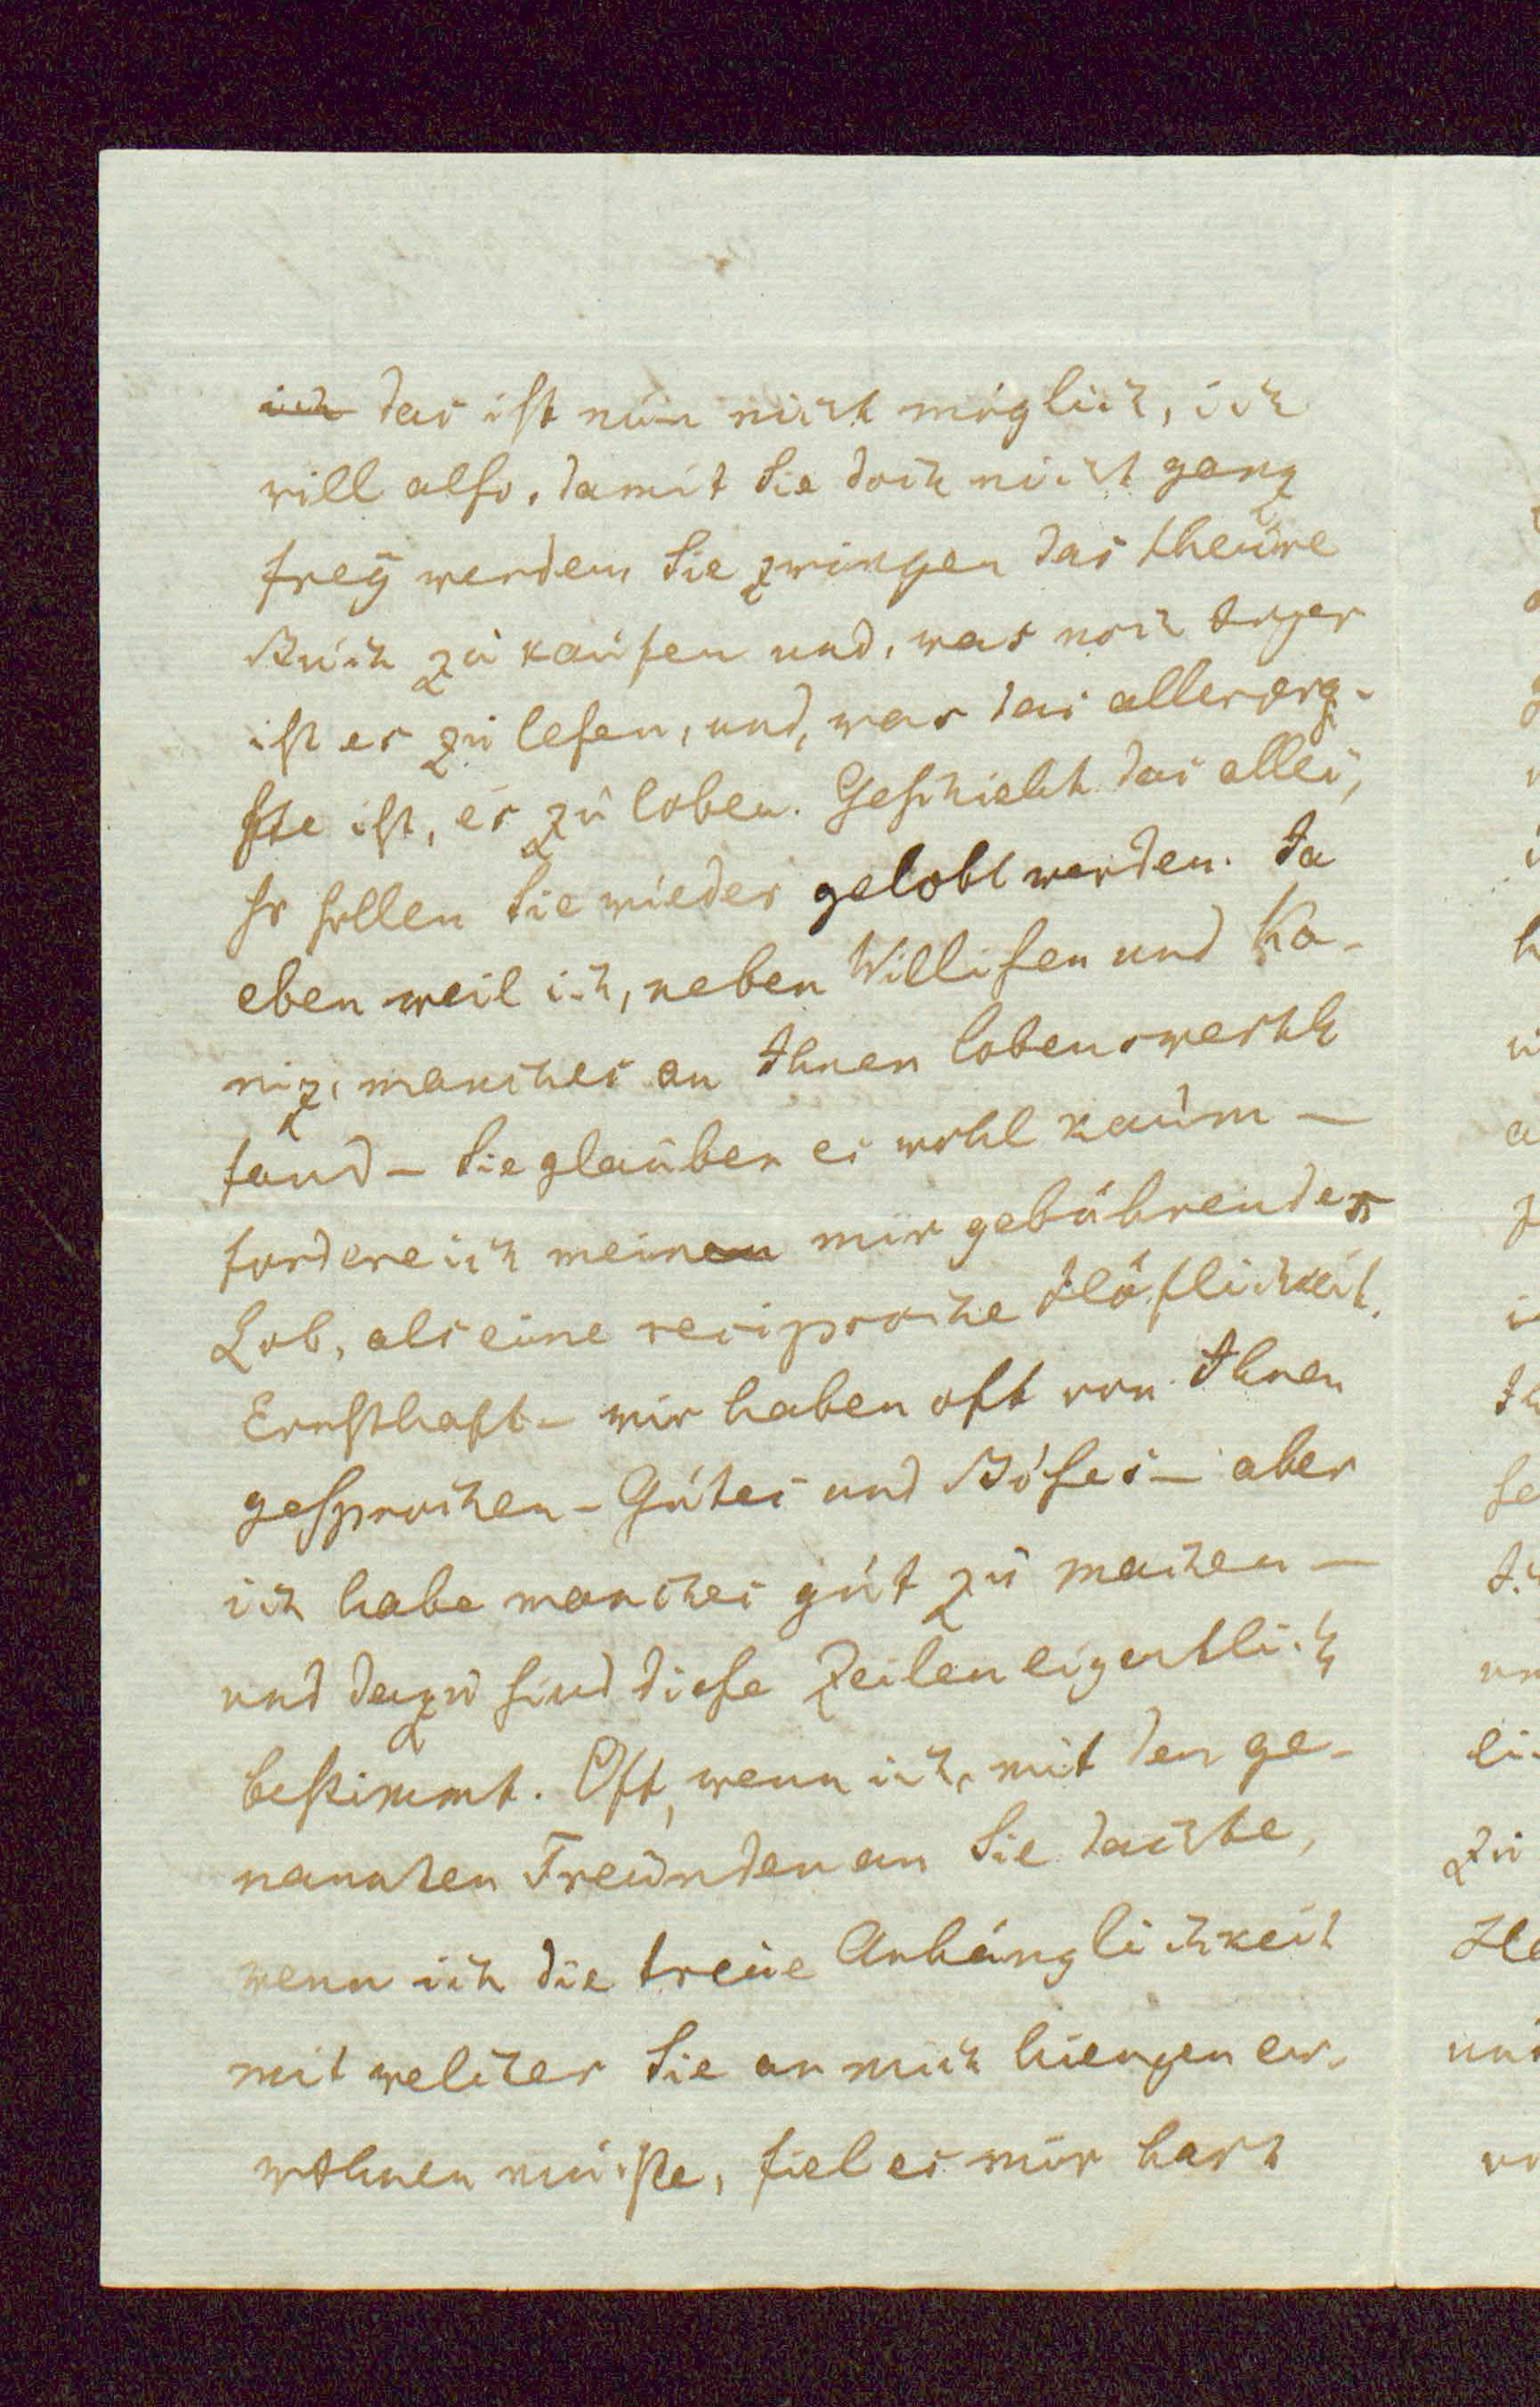 ich das ist nun nicht möglich, ich
will also, damit Sie doch nicht ganz
frey werden, Sie zwingen das theure
Buch zu kaufen und, was noch ärger
ist es zu lesen, und, was das allerärg-
ste ist, es zu loben. Geschieht das alles,
so sollen Sie wieder gelobt werden. Ja
eben weil ich, neben Willisen und Ka-
niz, manches an Ihnen lobenswerth
fand – Sie glauben es wohl kaum –
fordere ich meinen mir gebührendes
Lob, als eine reciproche Höflichkeit.
Ernsthaft – wir haben oft von Ihnen
gesprochen – Gutes und Böses – aber
ich habe manches gut zu machen –
und dazu sind diese Zeilen eigentlich
bestimmt. Oft, wenn ich, mit den ge-
nannten Freunden an Sie dachte,
wenn ich die treue Anhänglichkeit
mit welcher Sie an mich hiengen er-
wähnen mußte, fiel es mir hart